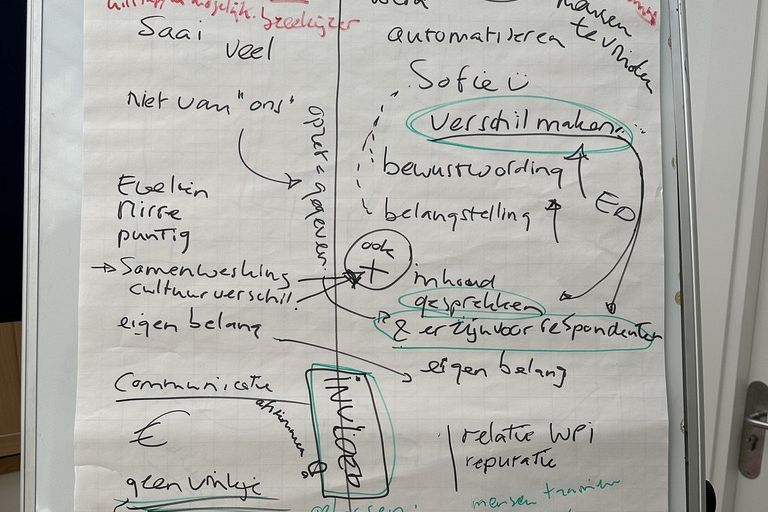 breekijzer
Saai
veel
Niet van "ons"
opzet = gegeven
Evelien
Mirre
puntig
→ Samenwerking
cultuurverschil
eigen belang
Communicatie
€
geen vinkje
INVLOED
automatiseren
mensen
te vinden
Sofie ü
verschil maken
bewustwording
belangstelling
EO
ook
+
inhoud
gesprekken
& er zijn voor respondenten
eigen belang
relatie WPI
reputatie
mensen